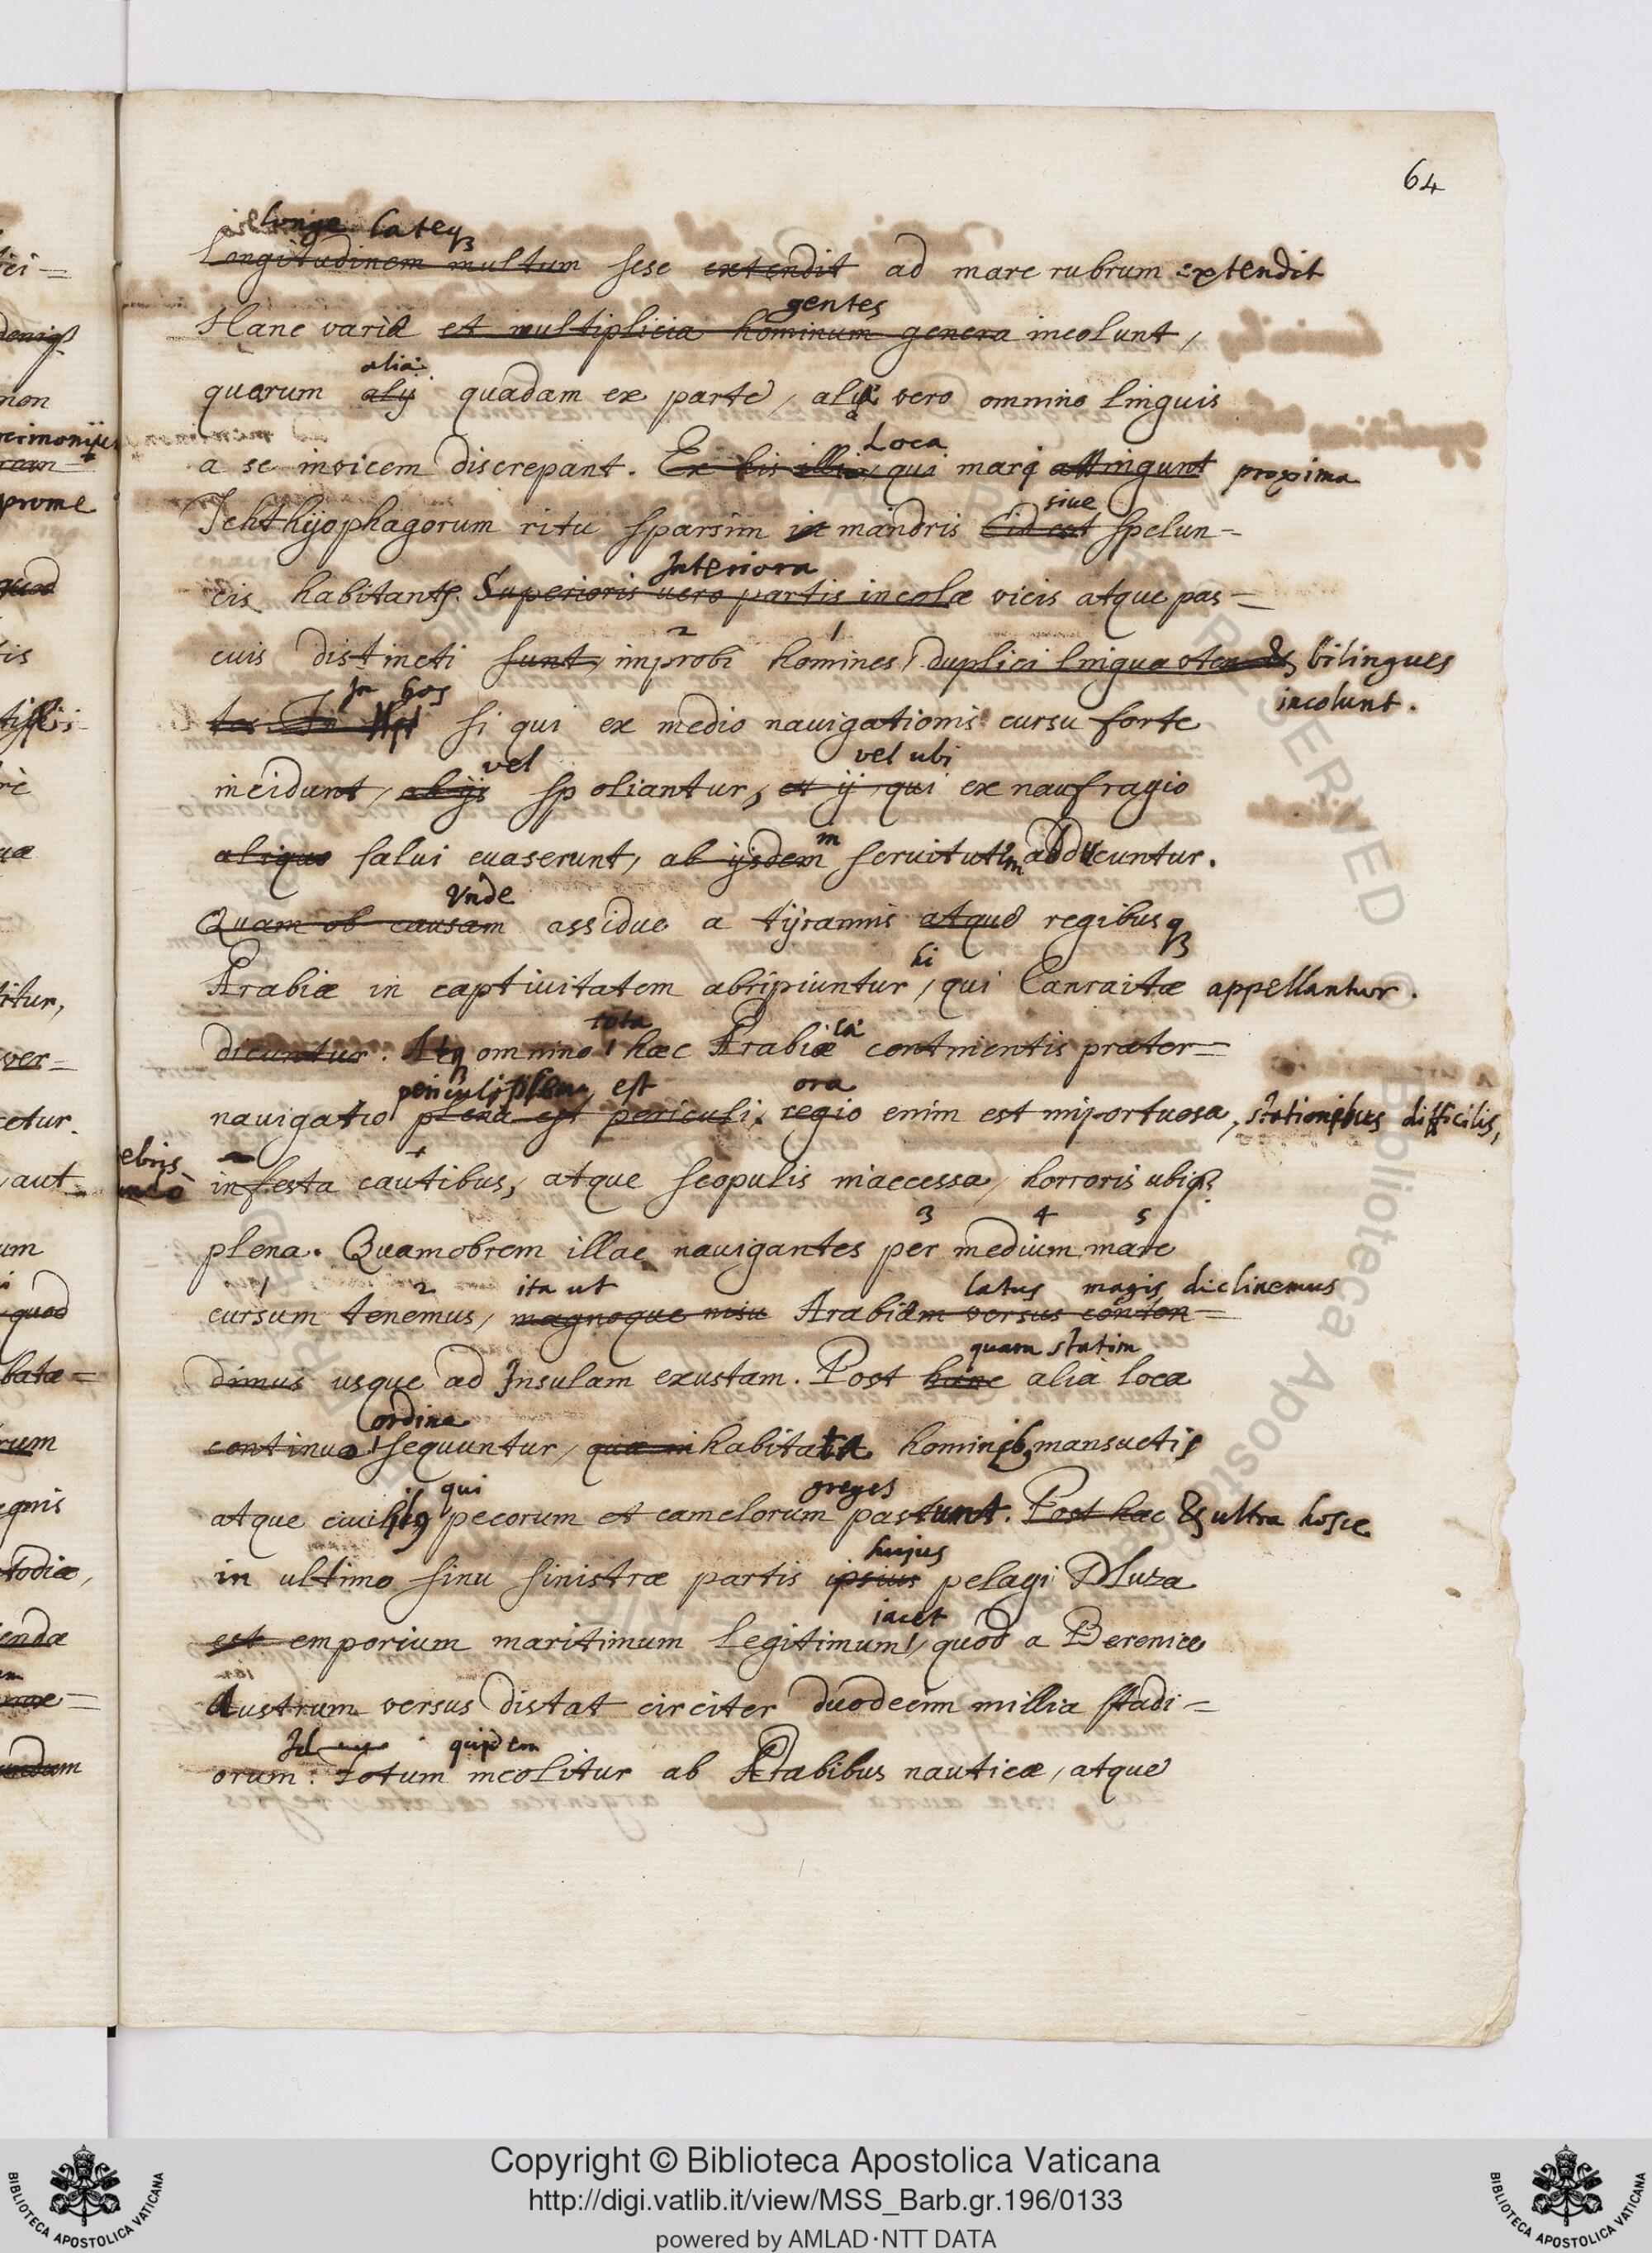 64
longe lateq;
Longitudinem multum sese extendit ad mare rubrum extendit
gentes
Hanc variæ et multiplicia hominum genera incolunt,
aliæ
quarum alij quadam ex parte, aliæ vero omnino linguis
Loca
a se invicem discrepant. Ex his illi qui mari attingunt proxima
siue
Ichthijophagorum ritu sparsim in mandris id est spelun=
Interiora
cis habitant. Superioris uero partis incolæ vicis atque pas=
2 1
cuis distincti sunt, improbi homines, duplici lingua uten & bilingues
incolunt.
In hos
tes. In si qui ex medio nauigationis cursu forte
vel vel ubi
incidunt, ab ijs spoliantur, et ij qui ex naufragio
m
aliquo salui euaserunt, ab ijsdem seruitutem adducuntur.
Vnde
Quam ob causam assidue a tijrannis atque regibusq;
hi
Arabiæ in captiuitatem abripiuntur, qui Canraitæ appellantur.
tota
dicuntur. Atq; omnino hæc Arabiæ continentis præter=
est ora
nauigatio plena est periculi, regio enim est importuosa, stationibus difficilis,
infesta cautibus, atque scopulis inaccessa, horroris ubiq;
3 4 5
plena. Quamobrem illac nauigantes per medium mare
1 2 ita ut latus magis diclinemus
cursum tenemus, magnoque nisu Arabiam versus conten=
quam statim
dimus usque ad Insulam exustam. Post hanc alia loca
ordine
continuo sequuntur, quæ inhabitata hominib; mansuetis
qui greges
atque ciuilib; pecorum et camelorum pascunt. Post hæc & ultra hosce
hujus
in ultimo sinu sinistræ partis ipsius pelagi Muza
iacet
est emporium maritimum legitimum, quod a Berenice
Austrum versus distat circiter duodecim millia stadi=
quidem
orum. Totum incolitur ab Arabibus nauticæ, atque
Copyright © Biblioteca Apostolica Vaticana
http://digi.vatlib.it/view/MSS_Barb.gr.196/0133
powered by AMLAD·NTT DATA
BIBLIOTECA APOSTOLICA VATICANA
BIBLIOTECA APOSTOLICA VATICANA